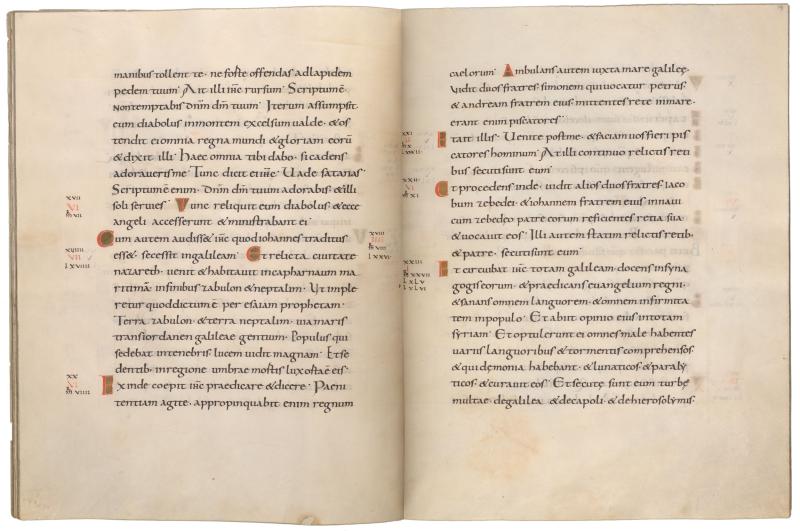 manibus tollent te· ne forte offendas ad lapidem
pedem tuum· Ait illi ihc rursum· Scriptum ē·
Non temptabis dnm dm tuum· Iterum assumpsit
eum diabolus in montem excelsum valde· & os
tendit ei omnia regna mundi & gloriam eorū
& dixit illi· Haec omnia tibi dabo· si cadens
adoraveris me· Tunc dicit ei ihc· Uade satanas·
Scriptum ē enim· Dnm dm tuum adorabis· & illi
soli servies· Tunc reliquit eum diabolus· & ecce
angeli accesserunt & ministrabant ei·
Cum autem audiss& ihc quod iohannes traditus
ess&· secessit in galileam· Et relicta civitate
nazareth· venit & habitavit in capharnaum ma
ritima· in finibus zabulon & neptalim· Ut imple
retur quod dictum ē per esaiam prophetam·
Terra zabulon· & terra neptalim· via maris
trans iordanen galileae gentium· Populus qui
sedebat in tenebris lucem vidit magnam· Et se
dentib· in regione umbrae mortis lux orta ē eis·
Exinde coepit ihc praedicare & dicere· Paeni
tentiam agite· appropinquabit enim regnum
XVII
VI
M VII
XVIIII
VII
LXVIII
XX
VI
M VIIII
caelorum· Ambulans autem iuxta mare galileę·
vidit duos fratres· simonem qui vocatur petrus·
& andream fratrem eius· mittentes rete in mare·
erant enim piscatores·
Et ait illis· Uenite post me· & faciam vos fieri pis
catores hominum· At illi continuo relictis reti
bus secuti sunt eum·
Et procedens inde· vidit alios duos fratres· iaco
bum zebedei· & iohannem fratrem eius in navi
cum zebedęo patre eorum reficientes retia sua·
& vocavit eos· Illi autem statim relictis retib·
& patre· secuti sunt eum·
Et circuibat ihc totam galileam· docens in syna
gogis eorum· & praedicans evangelium regni·
& sanans omnem languorem· & omnem infirmita
tem in populo· Et abiit opinio eius in totam
syriam· Et optulerunt ei omnes male habentes
variis languoribus & tormentis comprehensos·
& qui demonia habebant· & lunaticos· & paraly
ticos· & curavit eos· Et secutę sunt eum turbę
multae· de galilea· & decapoli· & de hierosolymis·
XVIII
IIII
M VIII
LXXVI
XXI
XXII
VI
M XI
XXIII
M XXXVII
LXLV
LXLVI